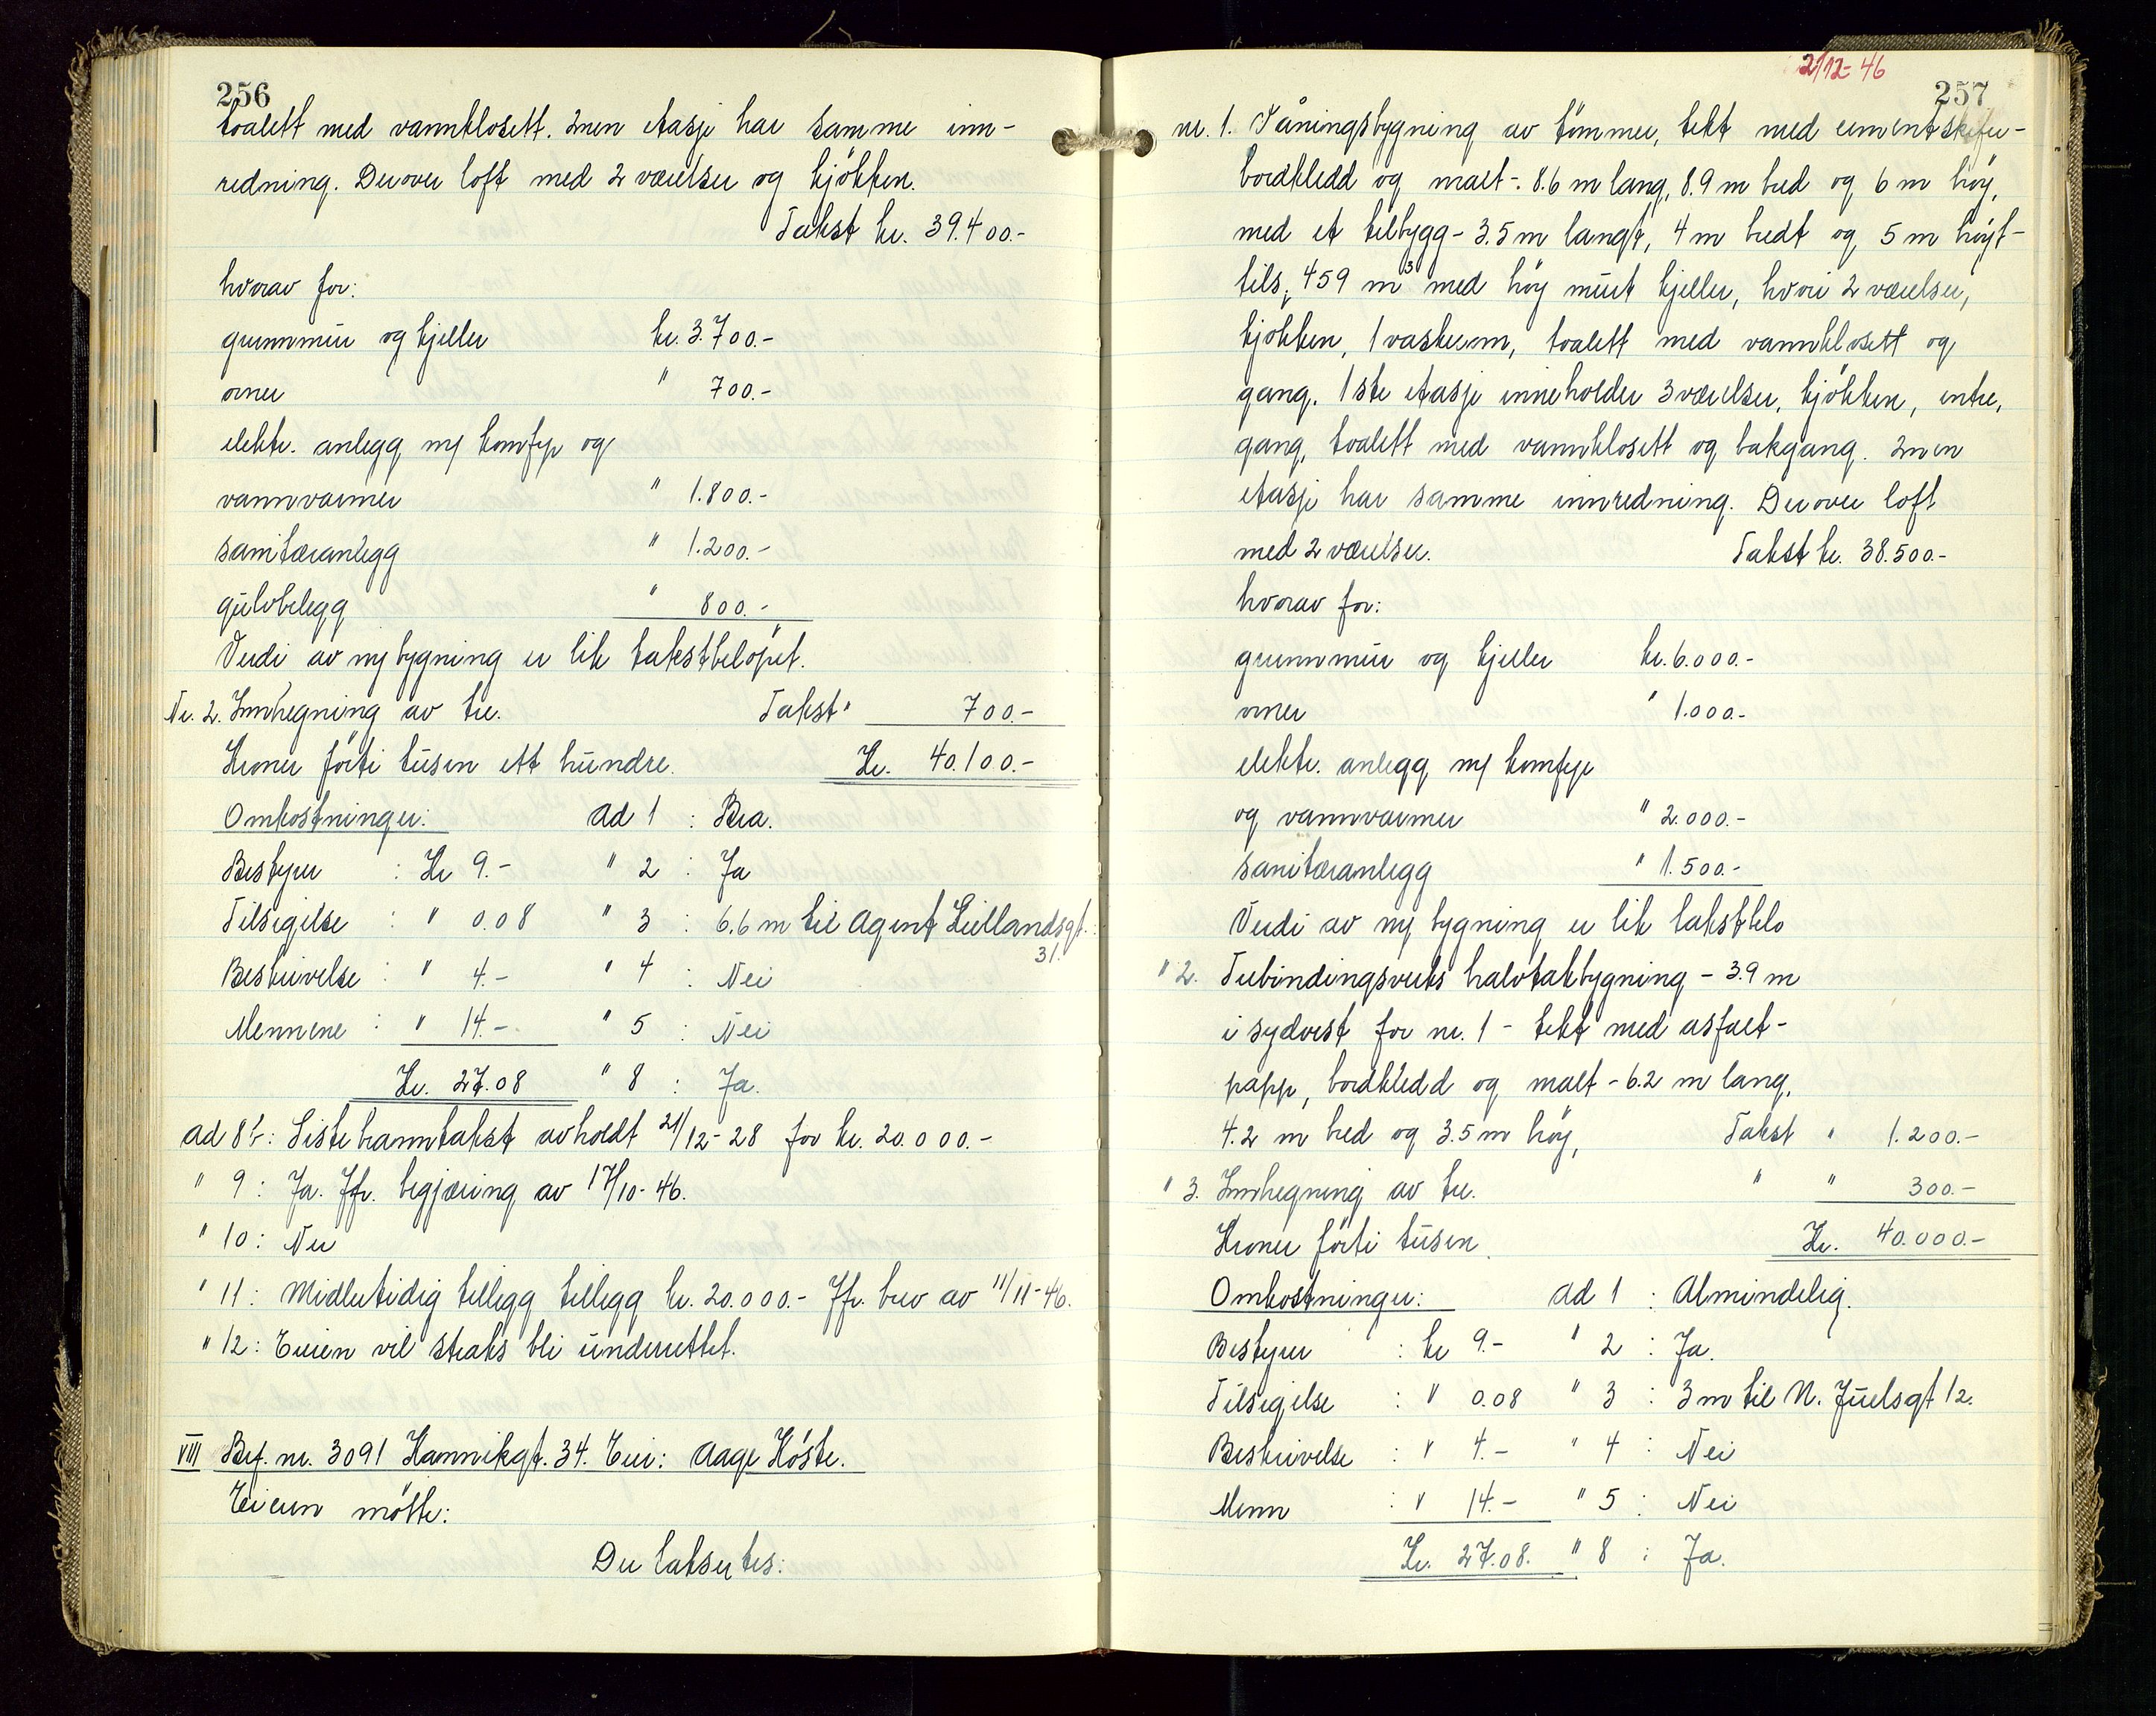 256
toalett med vannklosett. 2nen etasje har samme inn-
redning. Derover loft med 2 værelser og kjökken.
Takst kr. 39.400.-
hvorav for:
grunnmur og kjeller kr. 3.700.-
ovner " 700.-
elektr. anlegg m/ komfyr og
vannvarmer " 1.800.-
sanitæranlegg " 1.200.-
gulvbelegg " 800.-
Verdi av ny bygning er lik takstbelöpet.
Nr. 2. Innhegning av tre. Takst " 700.-
Kroner förti tusen ett hundre. Kr. 40.100.-
Omkostninger: ad 1 : Bra.
Bestyrer : Kr 9.- " 2 : Ja
Tilsigelse : " 0.08 " 3 : 6.6 m til Agent Liellandsgt.
31.
Beskrivelse : " 4.- " 4 : Nei
Mennene : " 14.- " 5 : Nei
Kr. 27.08 " 8 : Ja.
ad 8b: Siste branntakst avholdt 21/12-28 for kr. 20.000.-
" 9 : Ja. Jfr. begjæring av 17/10-46.
" 10 : Nei
" 11 : Midlertidig tillegg tillegg kr. 20.000.- Jfr. brev av 11/11-46.
" 12 : Eieren vil straks bli underrettet.
VIII Bef. nr. 3091 Kannikgt. 34. Eier: Aage Höste.
Eieren mötte:
Der taksertes:
2/12-46
257
nr. 1. Våningsbygning av tömmer, tekt med cementskifer-
bordkledd og malt-. 8.6 m lang, 8.9 m bred og 6 m höy,
med et tilbygg - 3.5 m langt, 4 m bredt og 5 m höyt-
tils. 459 m3 med höy murt kjeller, hvori 2 værelser,
kjökken, 1 vaskerum, toalett med vannklosett og
gang. 1ste etasje inneholder 3 værelser, kjökken, entre,
gang, toalett med vannklosett og bakgang. 2nen
etasje har samme innredning. Derover loft
med 2 værelser. Takst kr. 38.500.-
hvorav for:
grunnmur og kjeller kr. 6.000.-
ovner " 1.000.-
elektr. anlegg m/ komfyr
og vannvarmer " 2.000.-
sanitæranlegg " 1.500.-
Verdi av ny bygning er lik takstbelo
" 2. Utbindingsverks halvtakbygning - 3.9 m
i sydvest for nr. 1 - tekt med asfalt-
papp, bordkledd og malt - 6.2 m lang,
4.2 m bred og 3.5 m höy, Takst " 1.200.-
" 3. Innhegning av tre. " " 300.-
Kroner förti tusen. Kr. 40.000.-
Omkostninger: ad 1 : Almindelig.
Bestyrer : kr 9.- " 2 : Ja.
Tilsigelse : " 0.08 " 3 : 3 m til N. Juelsgt 12.
Beskrivelse : " 4.- " 4 : Nei
Menn : " 14.- " 5 : Nei
Kr. 27.08. " 8 : Ja.